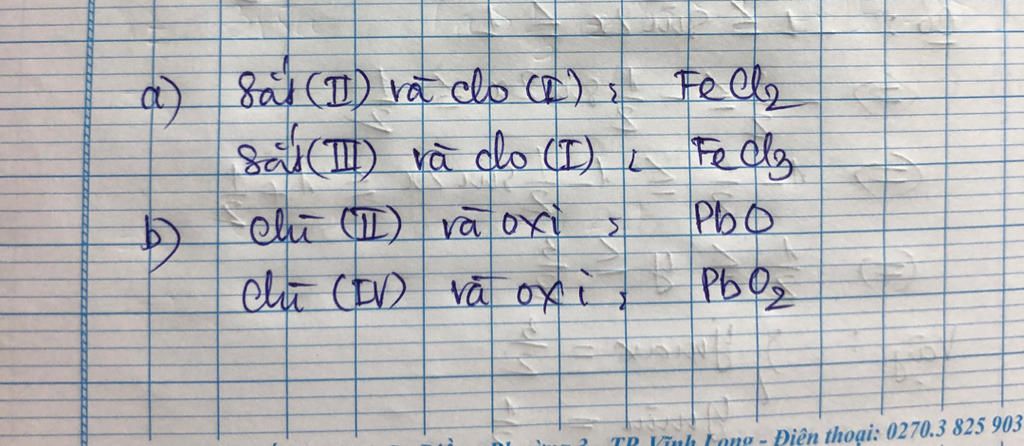 a) Sắt (II) và clo (I) : FeCl2
Sắt (III) và clo (I) : FeCl3
b) Chì (II) và oxi : PbO
Chì (IV) và oxi : PbO2
TP Vĩnh Long - Điện thoại: 0270.3 825 903